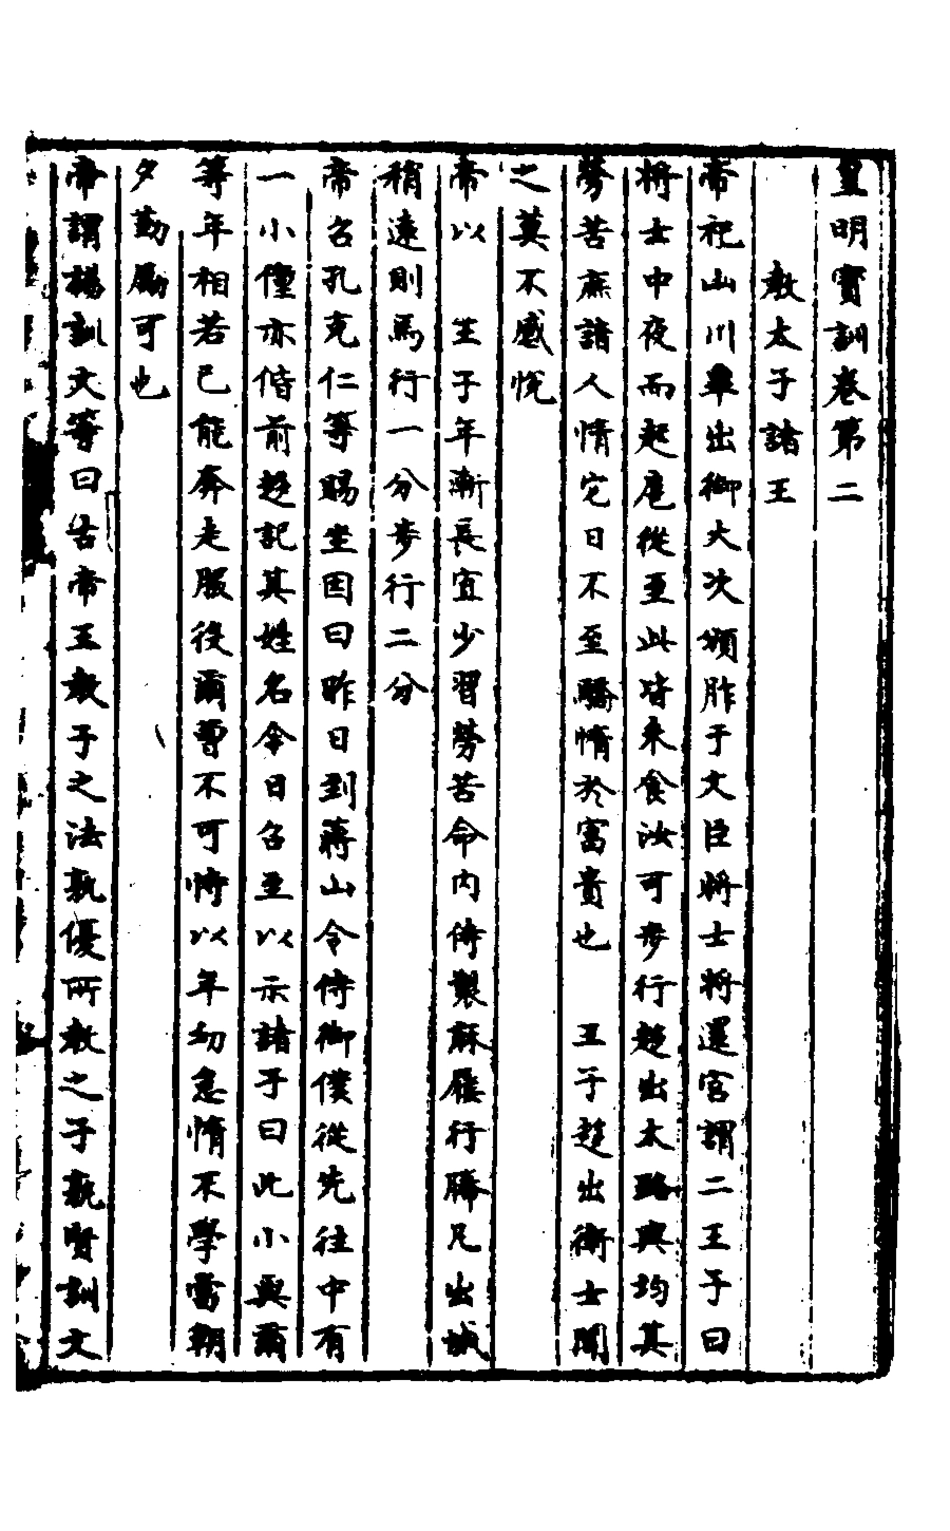 皇明寶訓卷第二
教太子諸王
帝祀山川畢出御大次頒胙于文臣將士將還宮謂二王子曰
將士中夜而起扈從至此皆未食汝可步行趨出大輅與均其
勞苦庶諳人情它日不至驕惰於富貴也 王子趨出衛士聞
之莫不感悅
帝以 王子年漸長宜少習勞苦命內侍製麻屨行縢凡出城
稍遠則馬行一分步行二分
帝召孔克仁等賜坐因曰昨日到蔣山令侍御僕從先往中有
一小僮亦偕前趨記其姓名令日召至以示諸子曰此小與爾
等年相若已能奔走服役爾曹不可恃以年幼怠惰不學當朝
夕勤勵可也
帝謂楊訓文等曰古帝王教子之法孰優所教之子孰賢訓文